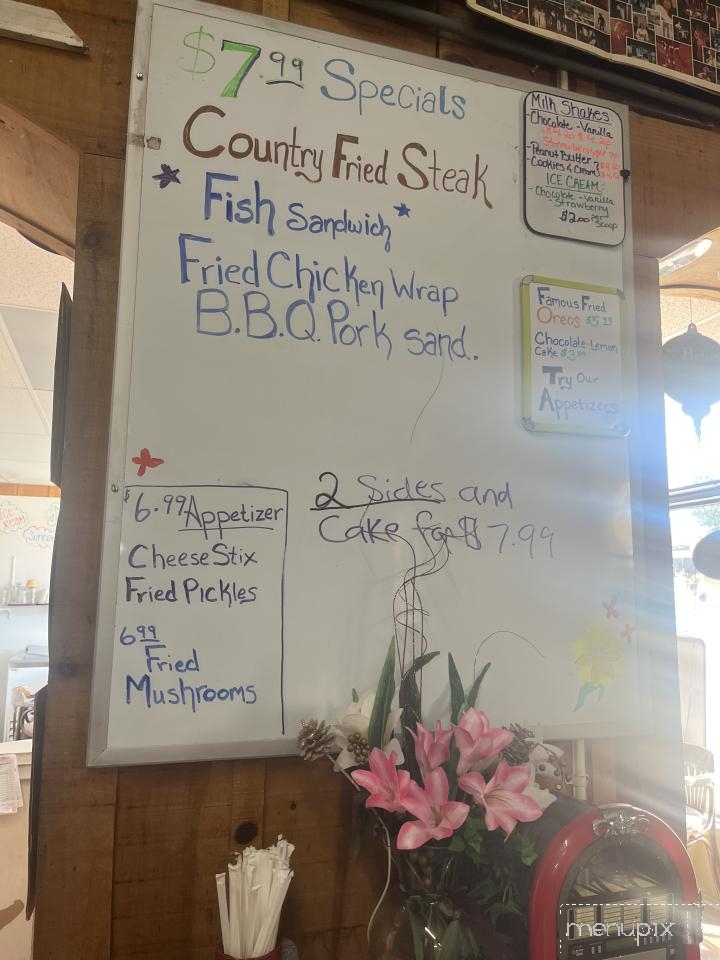 $7.99 Specials
Country Fried Steak
Fish Sandwich
Fried Chicken Wrap
B.B.Q. Pork Sand.
Milk Shakes:
-Chocolate -Vanilla
-Peanut Butter
-Cookies & Cream
ICE CREAM:
-Chocolate -Vanilla
-Strawberry
$2.00 per Scoop
Famous Fried
Oreos $5.99
Chocolate-Lemon
Cake $3.00
Try Our
Appetizers
$6.99 Appetizer
Cheese Stix
Fried Pickles
6.99
Fried
Mushrooms
2 Sides and
Cake for $7.99
menupix